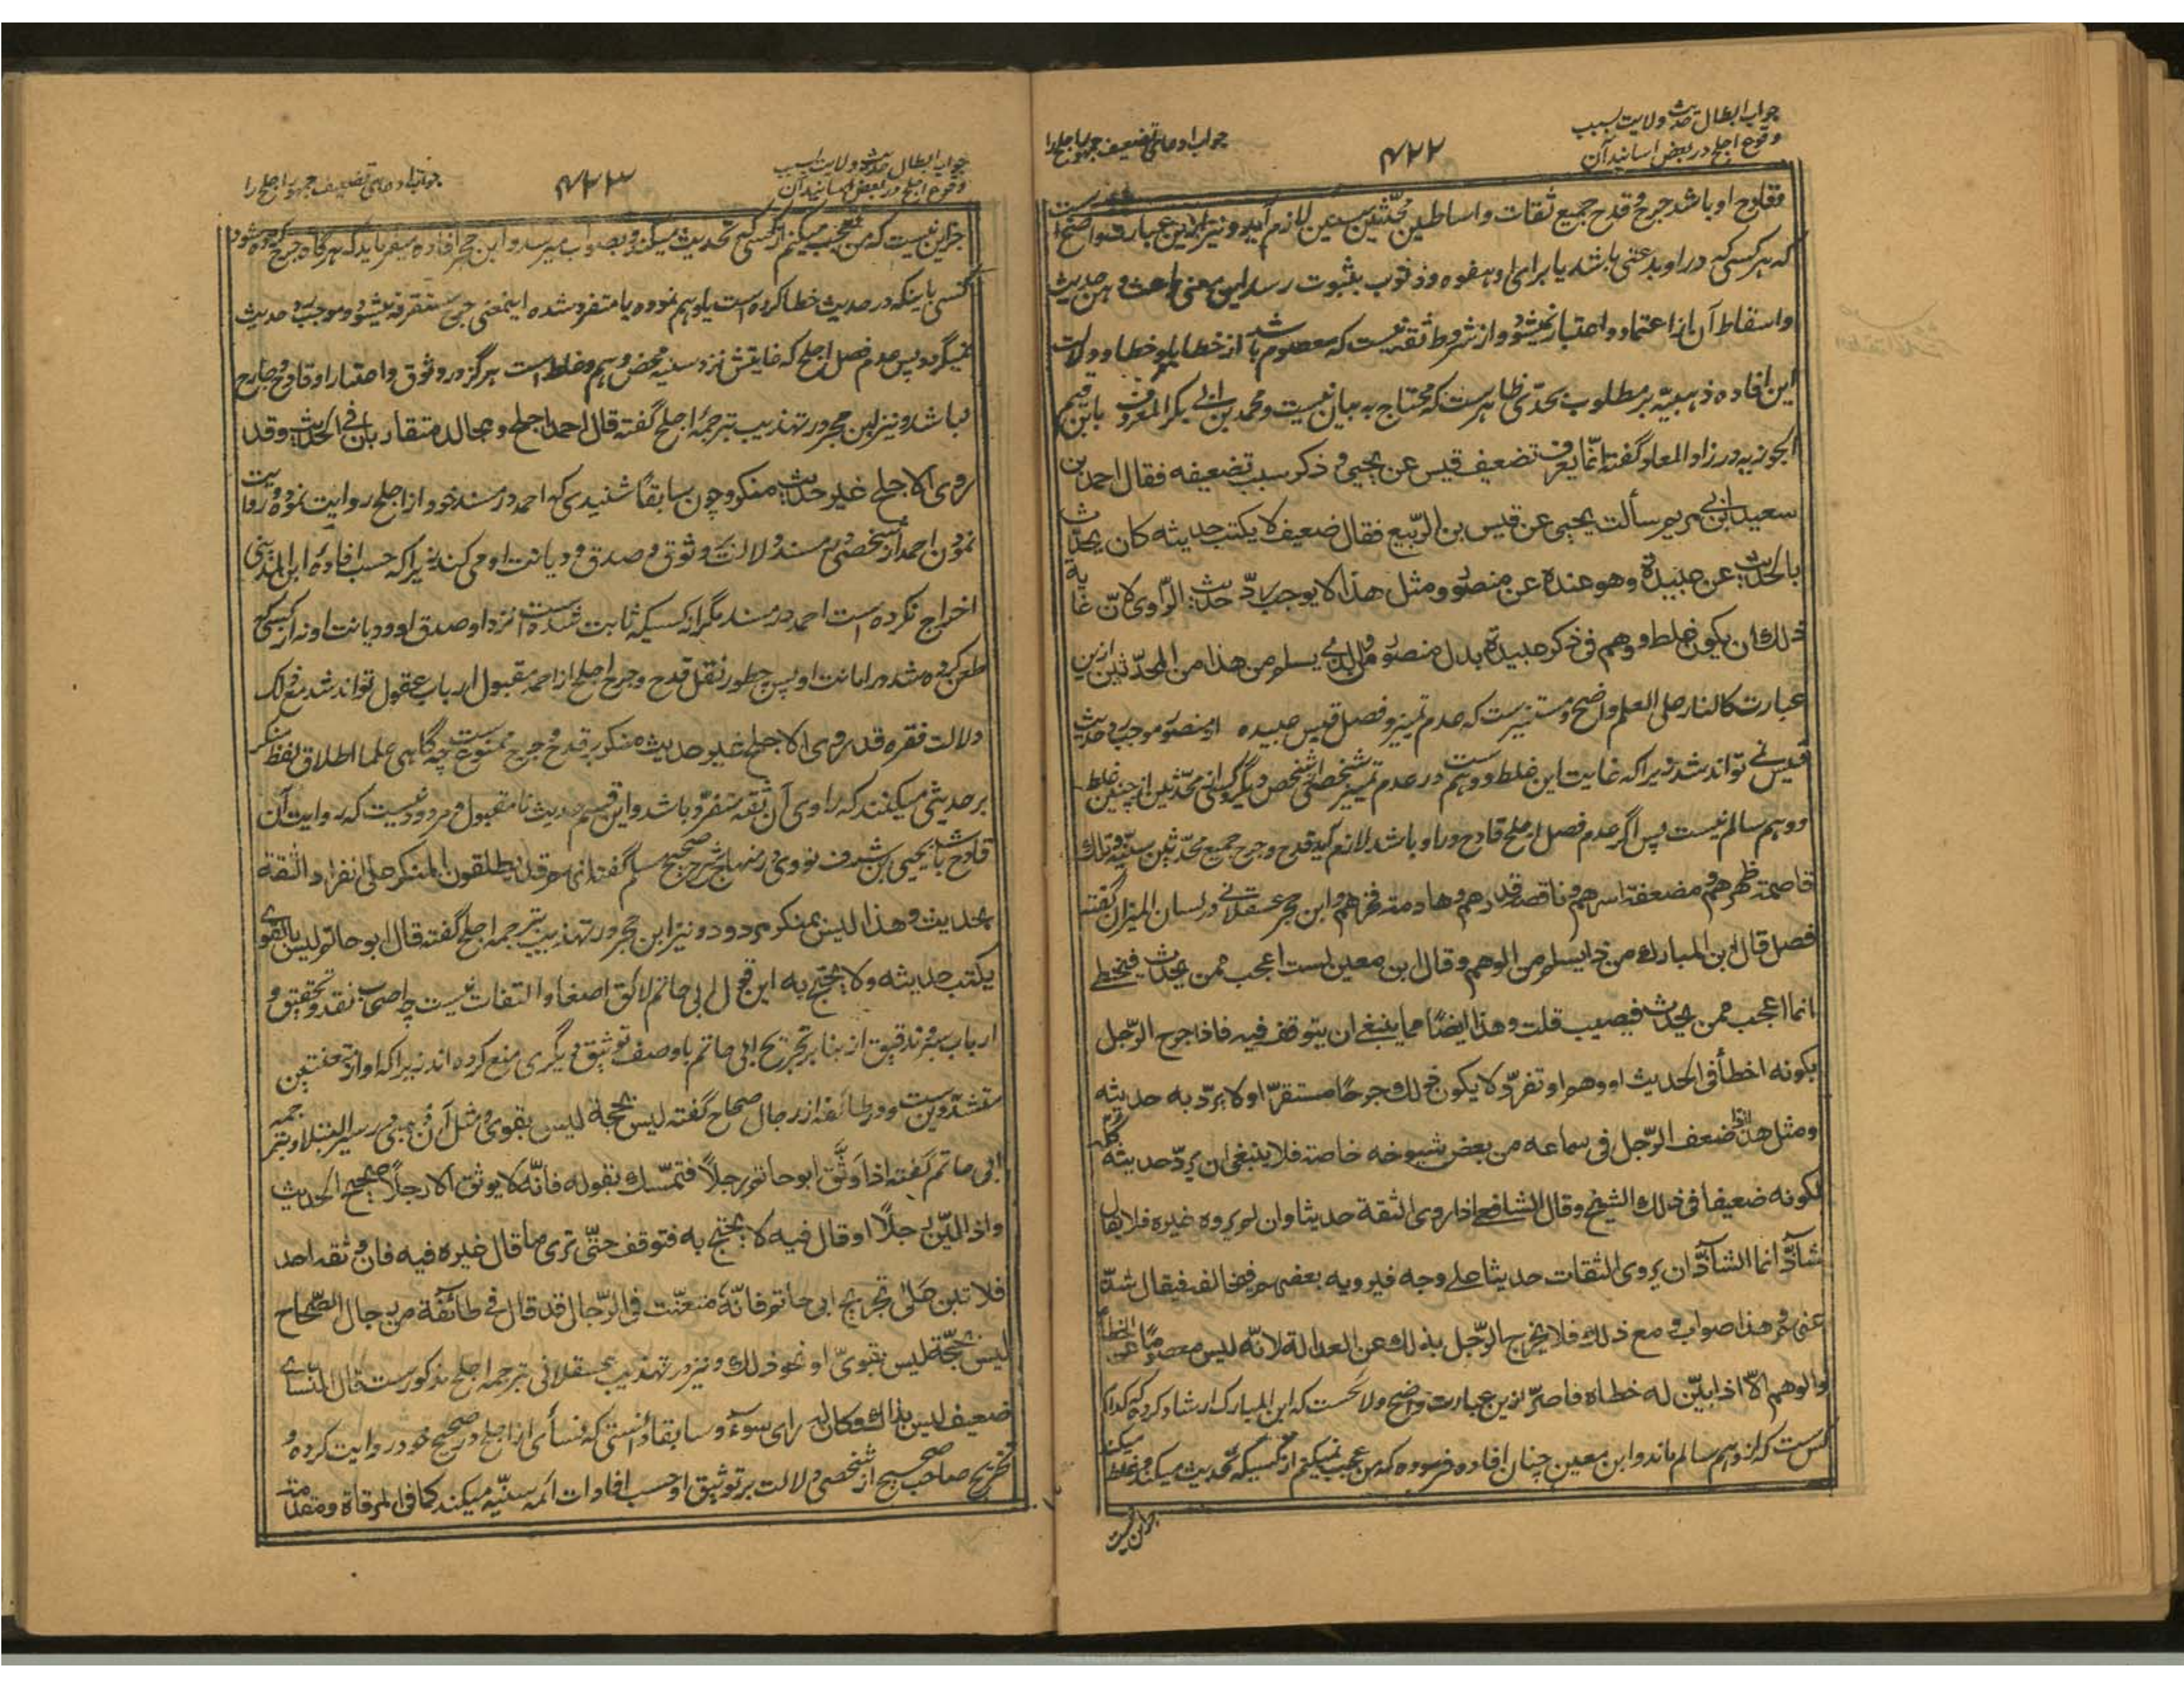 جواب ابطال حدیث ولایت بسبب
وقوع اجلح در بعض اسانید آن
۴۲۲
جواب ادعای تضعیف جمهور اجلح را
وقادح او باشد جرح و قدح جمیع ثقات و اساطین محدّثین سنیین لازم آید و نیز ازین عبارت واضح است
که هر کسی که در او بدعتی باشد یا برای او هفوه و ذنوب بثبوت رسد این معنی باعث وهن حدیث
و اسقاط آن از اعتماد و اعتبار نمیشود و از شروط ثقه نیست که معصوم باشد از خطایا و خطا و دلالت
این افاده ذهبیّه بر مطلوب بحدّی ظاهرست که محتاج به بیان نیست و محمد بن ابی بکر المعروف بابن قیم
الجوزیه در زاد المعاد گفته انّما یعرف تضعیف قیس عن یحیی و ذکر سبب تضعیفه فقال احمد بن
سعید بن ابی مریم سألت یحیی عن قیس بن الرّبیع فقال ضعیف لا یکتب حدیثه کان یحدّث
بالحدیث عن عبیدة وهو عنده عن منصور ومثل هذا لا یوجب ردّ حدیث الرّاوی لانّ غایة
ذلك ان یکون غلط ووهم فی ذکر عبیدة بدل منصور ومن الذی یسلم من هذا من المحدّثین ازین
عبارت کالنار علی العلم واضح و مستنیرست که عدم تمییز و فصل قیس عبیده از منصور موجب رد حدیث
قیس نمی تواند شد زیرا که غایت این غلط و وهم ست در عدم تمییز شخصی از شخص دیگر و کسی از محدّثین از چنین غلط
و وهم سالم نیست پس اگر عدم فصل اجلح قادح در او باشد لازم آید قدح و جرح جمیع محدّثین سنیّه وتلك
قاصمة ظهرهم ومضعفة اسرهم وناقصة قدرهم وهادمة فخرهم و ابن حجر عسقلانی در لسان المیزان گفته
فصل قال ابن المبارك من ذا یسلم من الوهم وقال ابن معین لست اعجب ممن یحدّث فیخطی
انما اعجب ممن یحدّث فیصیب قلت وهذا ایضًا مما ینبغی ان یتوقف فیه فاذا جرح الرّجل
بکونه اخطأ فی الحدیث او وهم او تفرّد لا یکون ذلك جرحًا مستقرًّا ولا یردّ به حدیثه
ومثل هذا اذا ضعف الرّجل فی سماعه من بعض شیوخه خاصة فلا ینبغی ان یردّ حدیثه کلّه
لکونه ضعیفا فی ذلك الشیخ وقال الشافعی اذا روی الثقة حدیثا وان لم یروه غیره فلا یقال
شاذّ انما الشاذّ ان یروی الثقات حدیثا علی وجه فیرویه بعضهم فیخالفه فیقال شذّ
عنهم هذا صواب ومع ذلك فلا یخرج الرّجل بذلك عن العدالة لانّه لیس معصومًا عن الخطأ
والوهم الّا اذا بیّن له خطاه فاصرّ ازین عبارت واضح و لائحست که ابن المبارک ارشاد کرده که کدام
کس ست که از وهم سالم ماند و ابن معین چنان افاده فرموده که من عجب نمیکنم از کسیکه تحدیث میکند و غلط میکند
جز این نیست
جواب ابطال حدیث ولایت بسبب
وقوع اجلح در بعض اسانید آن
۴۲۳
جواب ادعای تضعیف جمهور اجلح را
جز این نیست که من تعجب میکنم از کسی که تحدیث میکند و بصواب میرسد و ابن حجر افاده میفرماید که هرگاه جرح کرده شود
کسی باینکه در حدیث خطا کرده است یا وهم نموده یا متفرد شده اینمعنی جرح مستقر نمیشود و موجب رد حدیث
نمیگردد پس عدم فصل اجلح که غایتش نزد سنیه محض وهم و غلط است هرگز در وثوق و اعتبار او قادح و جارح
نباشد و نیز ابن حجر در تهذیب بترجمهٔ اجلح گفته قال احمد اجلح ومجالد متقاربان فی الحدیث وقد
روی الاجلح غیر حدیث منکر و چون سابقًا شنیدی که احمد در مسند خود از اجلح روایت نموده و روایت
نمودن احمد از شخصی در مسند دلالت بر وثوق و صدق و دیانت او می کند زیرا که حسب افادهٔ ابن المدینی
اخراج نکرده است احمد در مسند مگر از کسیکه ثابت شده است نزد او صدق او و دیانت او نه از کسی که
طعن کرده شد در امانت او پس چطور نقل قدح و جرح اجلح از احمد مقبول ارباب عقول تواند شد مع ذلک
دلالت فقره قد روی الاجلح غیر حدیث منکر بر قدح و جرح ممنوع ست چه گاهی علما اطلاق لفظ منکر
بر حدیثی میکنند که راوی آن ثقه متفرّد باشد و این قسم حدیث نامقبول و مردود نیست که روایت آن
قادح باشد یحیی بن شرف نووی در منهاج شرح صحیح مسلم گفته انهم قد یطلقون المنکر علی انفراد الثقة
بحدیث وهذا لیس بمنکر مردود و نیز ابن حجر در تهذیب بترجمه اجلح گفته قال ابو حاتم لیس بالقوی
یکتب حدیثه ولا یحتج به این قول ابی حاتم لائق اصغا و التفات نیست چه اصحاب نقد و تحقیق و
ارباب سبر و تدقیق از بنا بر تجریح ابی حاتم با وصف توثیق دیگری منع کرده اند زیرا که او از متعنتین
متشددین ست و در طائفه از رجال صحاح گفته لیس بحجة لیس بقوی و مثل آن ذهبی در سیر النبلا بترجمه
ابی حاتم گفته اذا وثّق ابو حاتم رجلًا فتمسّك بقوله فانّه لا یوثق الا رجلًا صحیح الحدیث
واذا لیّن رجلًا او قال فیه لا یحتج به فتوقف حتّی تری ما قال غیره فیه فان وثقه احد
فلا تبن علی تجریح ابی حاتم فانّه متعنّت فی الرّجال قد قال فی طائفة من رجال الصّحاح
لیس بحجّة لیس بقویّ او نحو ذلك و نیز در تهذیب عسقلانی بترجمه اجلح مذکورست قال النّسائی
ضعیف لیس بذاك وکان له رای سوء و سابقًا دانستی که نسائی از اجلح در صحیح خود روایت کرده و
تخریج صاحب صحیح از شخصی دلالت بر توثیق او حسب افادات ائمه سنّیه میکند کما فی المرقاة ومقدمة